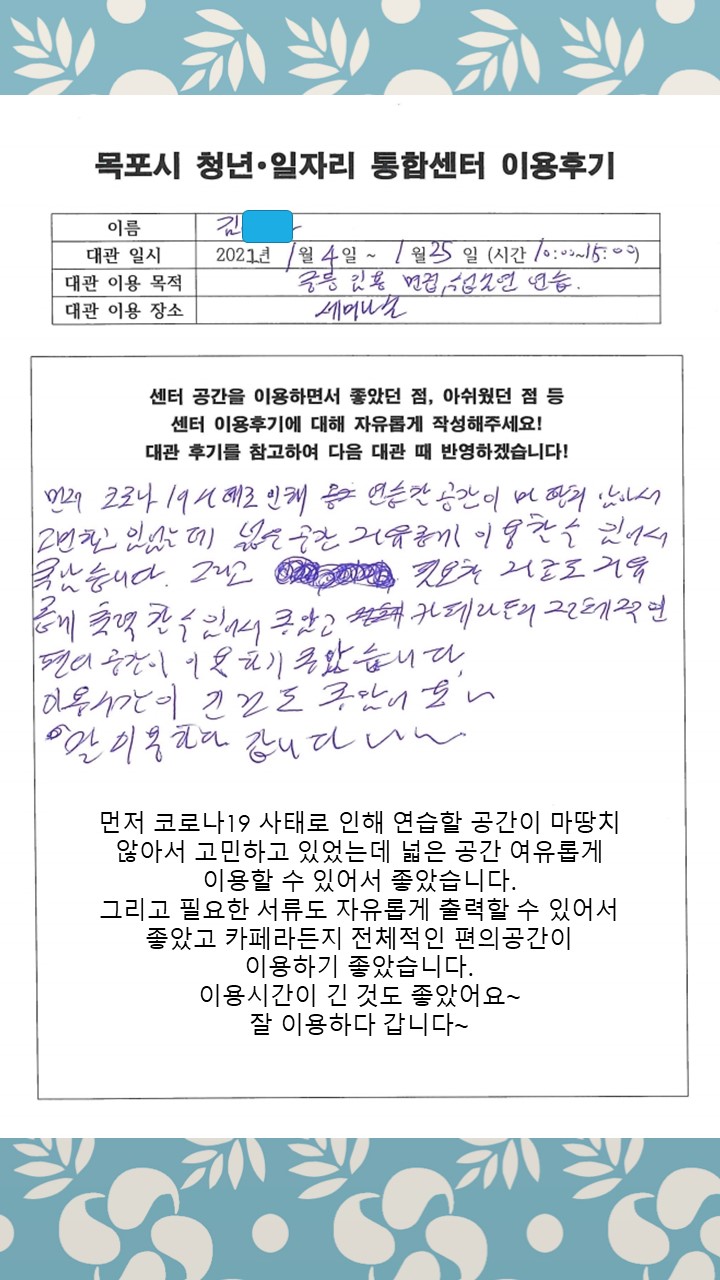 목포시 청년·일자리 통합센터 이용후기
이름 김
대관 일시 2021년 1월 4일 ~ 1월 25일 (시간 10:00~15:00)
대관 이용 목적 중등 임용 면접, 수업실연 연습.
대관 이용 장소 세미나실
센터 공간을 이용하면서 좋았던 점, 아쉬웠던 점 등
센터 이용후기에 대해 자유롭게 작성해주세요!
대관 후기를 참고하여 다음 대관 때 반영하겠습니다!
먼저 코로나19 사태로 인해 연습할 공간이 마땅치 않아서
고민하고 있었는데 넓은 공간 여유롭게 이용할 수 있어서
좋았습니다. 그리고 필요한 서류도 자유
롭게 출력할 수 있어서 좋았고 카페라든지 전체적인
편의공간이 이용하기 좋았습니다.
이용시간이 긴 것도 좋았어요~
잘 이용하다 갑니다~~
먼저 코로나19 사태로 인해 연습할 공간이 마땅치
않아서 고민하고 있었는데 넓은 공간 여유롭게
이용할 수 있어서 좋았습니다.
그리고 필요한 서류도 자유롭게 출력할 수 있어서
좋았고 카페라든지 전체적인 편의공간이
이용하기 좋았습니다.
이용시간이 긴 것도 좋았어요~
잘 이용하다 갑니다~